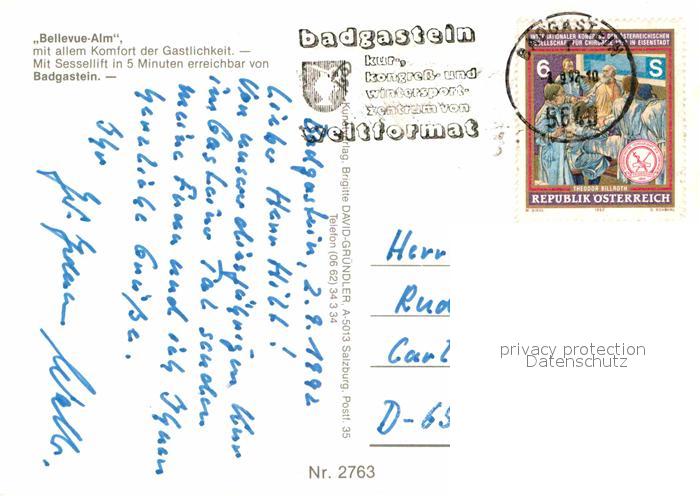 „Bellevue-Alm“,
mit allem Komfort der Gastlichkeit. —
Mit Sessellift in 5 Minuten erreichbar von
Badgastein. —
badgastein
kur-,
kongreß- und
wintersport-
zentrum von
weltformat
BADGASTEIN
5640
INTERNATIONALER KONGRESS DER ÖSTERREICHISCHEN
GESELLSCHAFT FÜR CHIRURGIE IN EISENSTADT
6 S
THEODOR BILLROTH
REPUBLIK ÖSTERREICH
1992
Kunstverlag, Brigitte DAVID-GRÜNDLER, A-5013 Salzburg, Postf. 35
Telefon (06 62) 34 3 34
Badgastein, 2.9.1992
Lieber Herr Hill!
Von unserer diesjährigen Kur
im Gasteiner Tal senden
meine Frau und ich Ihnen
herzliche Grüße.
Ihr
Herr
Rud
Carl
D-65
privacy protection
Datenschutz
Nr. 2763